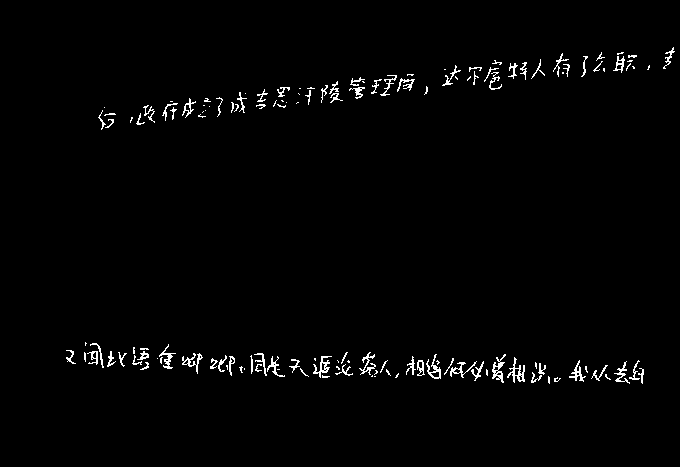 后，政府成立了成吉思汗陵管理所，达尔扈特人有了公职，专
又闻此语重唧唧。同是天涯沦落人，相逢何必曾相识。我从去年